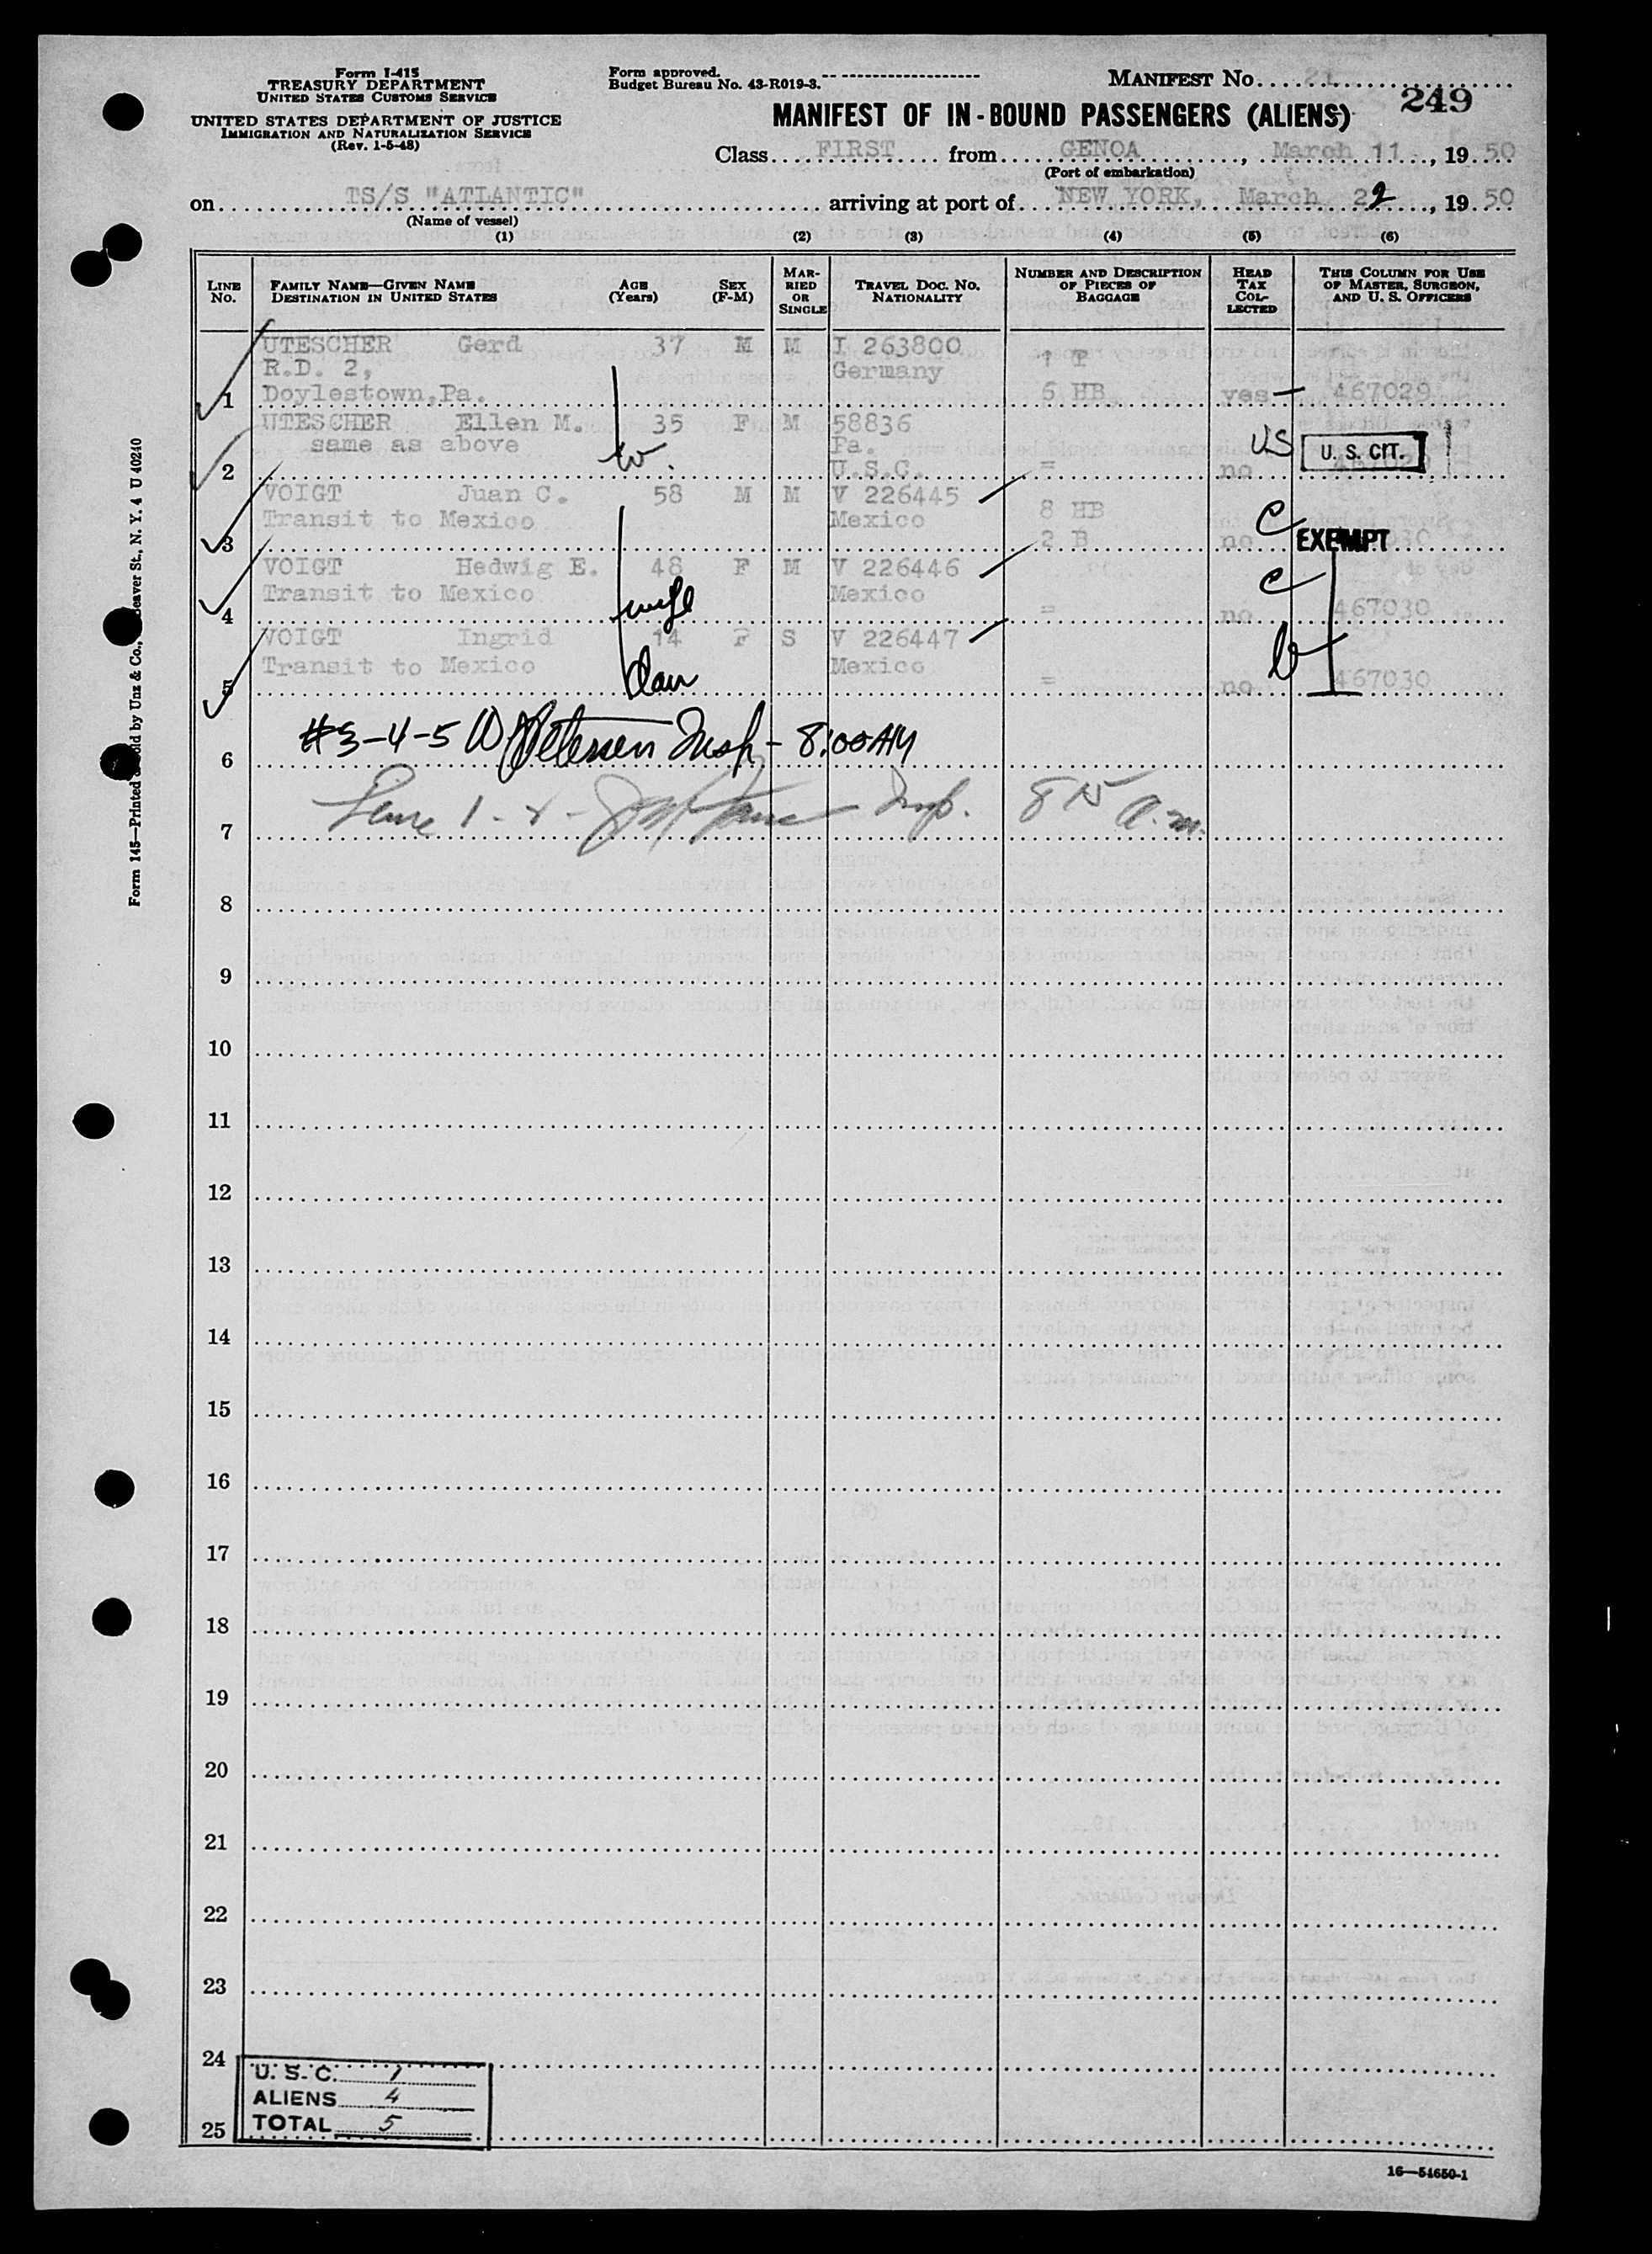 Form I-415
TREASURY DEPARTMENT
UNITED STATES CUSTOMS SERVICE
UNITED STATES DEPARTMENT OF JUSTICE
IMMIGRATION AND NATURALIZATION SERVICE
(Rev. 1-5-48)
Form approved.
Budget Bureau No. 43-R019-3.
MANIFEST NO. 21
249
MANIFEST OF IN-BOUND PASSENGERS (ALIENS)
Class FIRST from GENOA, March 11, 1950
(Port of embarkation)
on TS/S "ATLANTIC" arriving at port of NEW YORK, March 22, 1950
(Name of vessel)
(1) (2) (3) (4) (5) (6)
LINE NO. FAMILY NAME—GIVEN NAME DESTINATION IN UNITED STATES AGE (Years) SEX (F-M) MARRIED OR SINGLE TRAVEL DOC. NO. NATIONALITY NUMBER AND DESCRIPTION OF PIECES OF BAGGAGE HEAD TAX COLLECTED THIS COLUMN FOR USE OF MASTER, SURGEON, AND U. S. OFFICERS
UTESCHER Gerd 37 M M I 263800 1 T
R.D. 2, Germany
1 Doylestown,Pa. 6 HB yes 467029
UTESCHER Ellen M. 35 F M 58836
same as above Pa. US U. S. CIT.
2 w. U.S.C. = no 467029
VOIGT Juan C. 58 M M V 226445 8 HB
Transit to Mexico Mexico C
3 2 B no EXEMPT
VOIGT Hedwig E. 48 F M V 226446
Transit to Mexico Mexico C
4 wife = no 467030
VOIGT Ingrid 14 F S V 226447
Transit to Mexico Mexico
5 dau = no 467030
6 #3-4-5 Petersen Insp - 8:00 AM
7 Insp. 8 15 a.m.
8
9
10
11
12
13
14
15
16
17
18
19
20
21
22
23
24
25
U. S. C. 1
ALIENS 4
TOTAL 5
16—54650-1